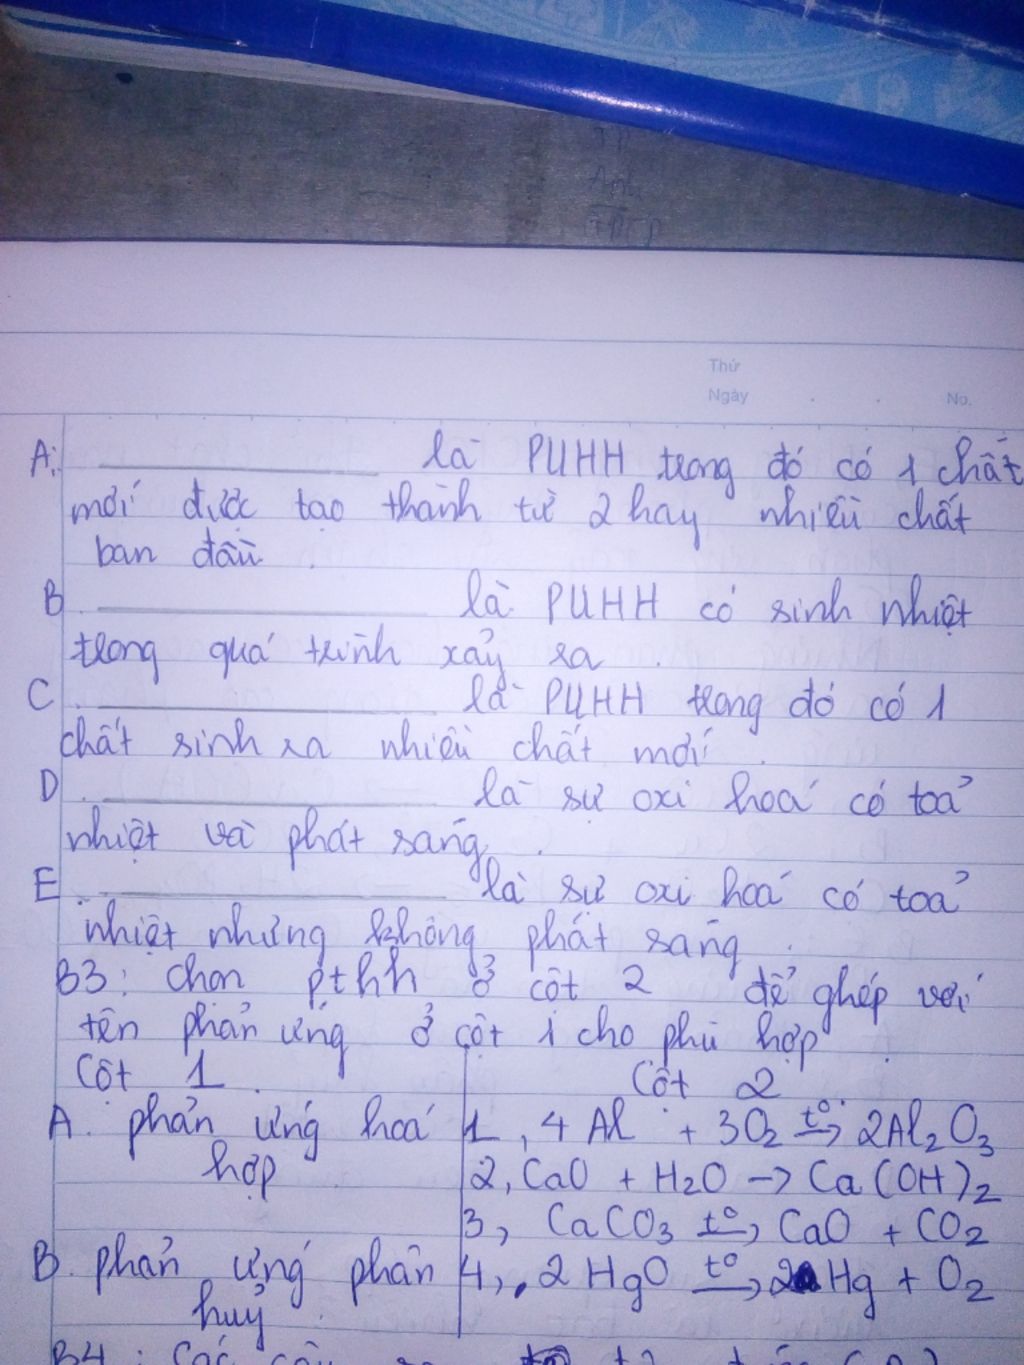 Thứ
Ngày . . No.
A. ________ là PƯHH trong đó có 1 chất
mới được tạo thành từ 2 hay nhiều chất
ban đầu .
B. ________ là PƯHH có sinh nhiệt
trong quá trình xảy ra .
C. ________ là PƯHH trong đó có 1
chất sinh ra nhiều chất mới .
D. ________ là sự oxi hoá có toả
nhiệt và phát sáng .
E. ________ là sự oxi hoá có toả
nhiệt nhưng không phát sáng .
B3: chọn pthh ở cột 2 để ghép với
tên phản ứng ở cột 1 cho phù hợp .
Cột 1 . Cột 2
A. phản ứng hoá 1, 4Al + 3O₂ t°→ 2Al₂O₃
hợp 2, CaO + H₂O → Ca(OH)₂
3, CaCO₃ t°→ CaO + CO₂
B. phản ứng phân 4, 2HgO t°→ 2Hg + O₂
huỷ
B4: Các câu